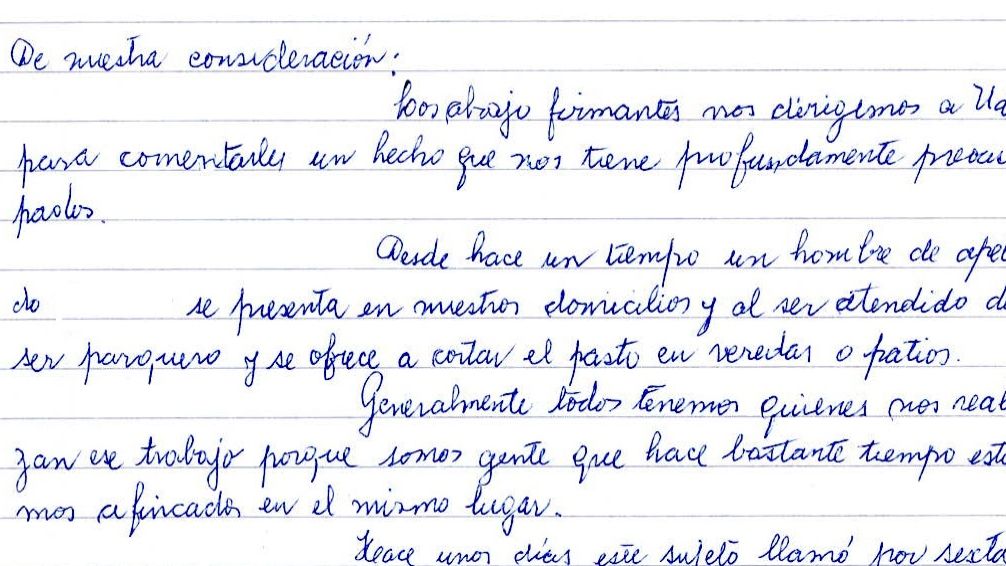 De nuestra consideración:
Los abajo firmantes nos dirigimos a Ud
para comentarles un hecho que nos tiene profundamente preocu
pados.
Desde hace un tiempo un hombre de apel
do se presenta en nuestros domicilios y al ser atendido di
ser parquero y se ofrece a cortar el pasto en veredas o patios.
Generalmente todos tenemos quienes nos reali
zan ese trabajo porque somos gente que hace bastante tiempo esta
mos afincados en el mismo lugar.
Hace unos días este sujeto llamó por sexta